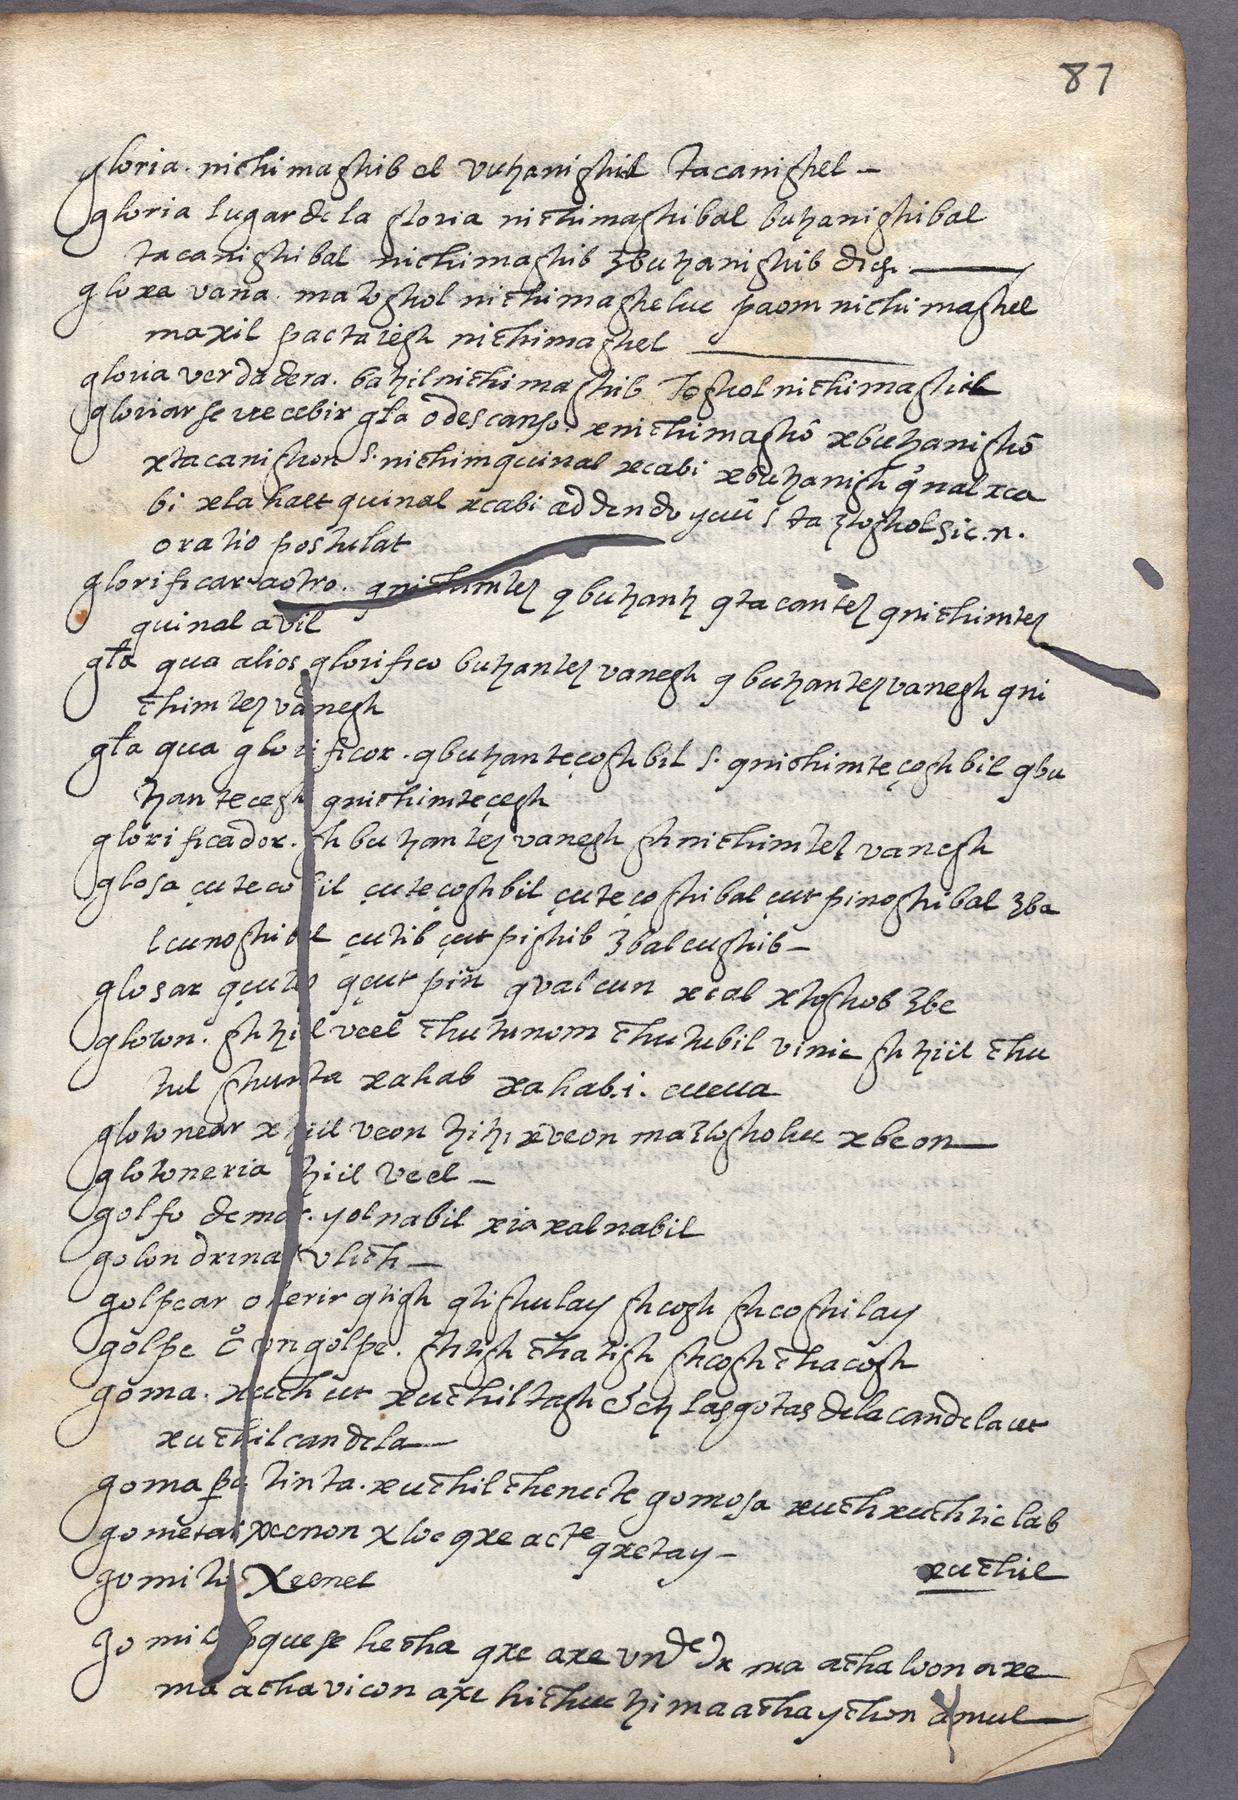 87
gloria. nichimaghib el vutzanighil tacanighel —
gloria lugar de la gloria nichimaghibal butzanighibal
tacanighibal nichimaghib ʒbutzanighib dich. —
gloria vana. matoghol nichimagheluc paom nichimaghel
maxil pactaiegh nichimaghel —
gloria verdadera. batzil nichimaghib toghol nichimaghil
gloriarse l recebir gl̄a o descanso. xnichimaghō xbutzanighō
xtacanighon s. nichimquinal xcabi xbutzanigh qnal xca
bi xlahaet quinal xcabi addendo yuū l ta ʒtoghol sic.n.
oratio postulat
glorificar aotro. qnichimtez q butzantz qtacantez qnichimtez
quinal avil
gl̄a qua alios glorifico butzantez vanegh q butzantez vanegh qni
chimtez vanegh
gl̄a qua glorificor. qbutzanteçoghbil s. qnichimteçoghbil qbu
tzantecegh qnichimteçegh
glorificador. gh butzantez vanegh ghnichimtez vanegh
glosa çuteco bil çuteçoghbil çuteçoghibal çutpinoghibal ʒba
lcunoghibal çutib çutpighib ʒbalcughib —
glosar qçutes qçutpin qvalcun xcal xtoghob ʒbe
gloton. ghtziil veel chutunom chutubil vinic ghtziil chu
tul ghunta xahab xahab.i. cueua
glotonear xtziil veon tzitzi xveon maʒtogholuc xbeon —
glotoneria tziil veel —
golfo de mar. yolnabil xiaxalnabil
golondrina vlich —
golpear o herir qtigh qtighulay ghcogh ghcoghilay
golpe o un golpe. ghtigh chatigh ghcogh chacogh
goma. xuch ut xuchiltagh & etz las gotas dela candela ut
xuchil candela —
goma pa tinta. xuchil chenecte gomosa xuch xuchtic lab
gometar xeenon x loc qxe acte qxetay —
gomito Xeenel
xuchil
gomito lo que se hecha qxe axe unde dr ma achaloon axe
ma achavicon axe hichuc tzi ma achaychon amul —